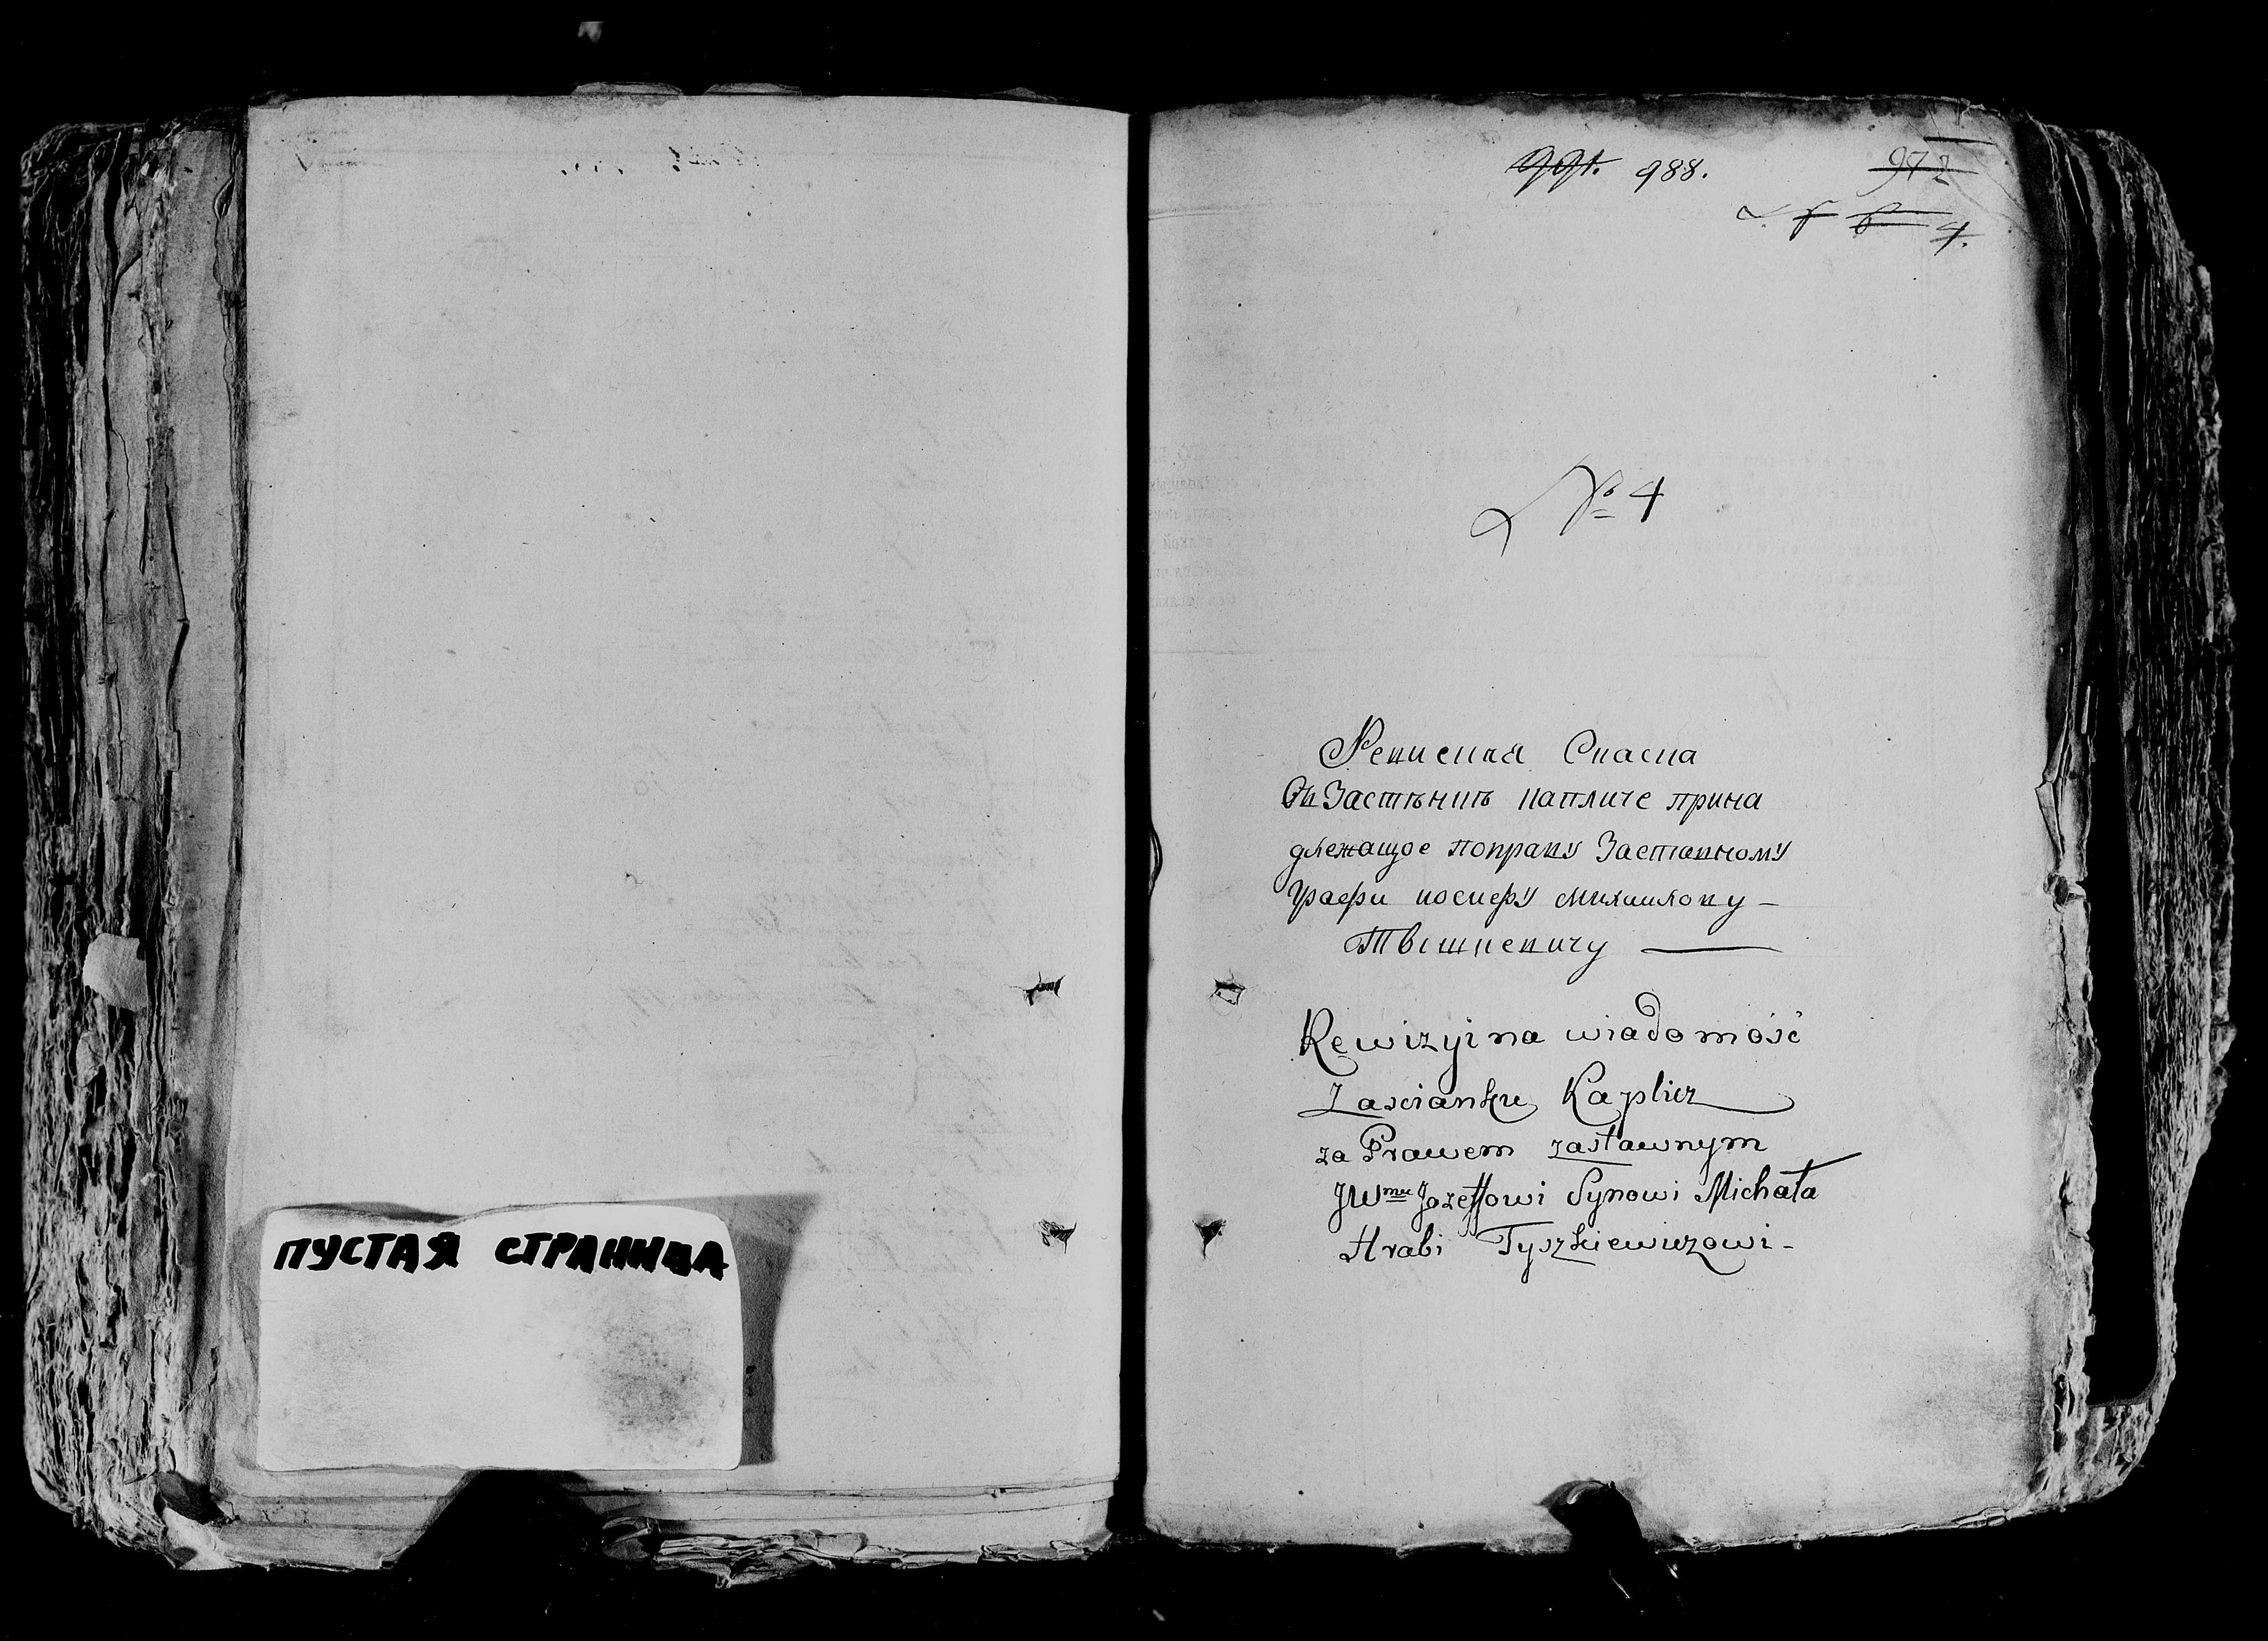 ПУСТАЯ СТРАНИЦА
991. 988.
972
4.
№ 4
Ревиская Скаска
Въ Застѣнкѣ Капличе прина
длежащое поправу Заставному
Графи иосифу михаилову –
Тышкевичу
Rewizyina wiadomość
Zascianku Kaplicz
za Prawem zastawnym
JWmu Jozeffowi Synowi Michała
Hrabi Tyszkiewiczowi –